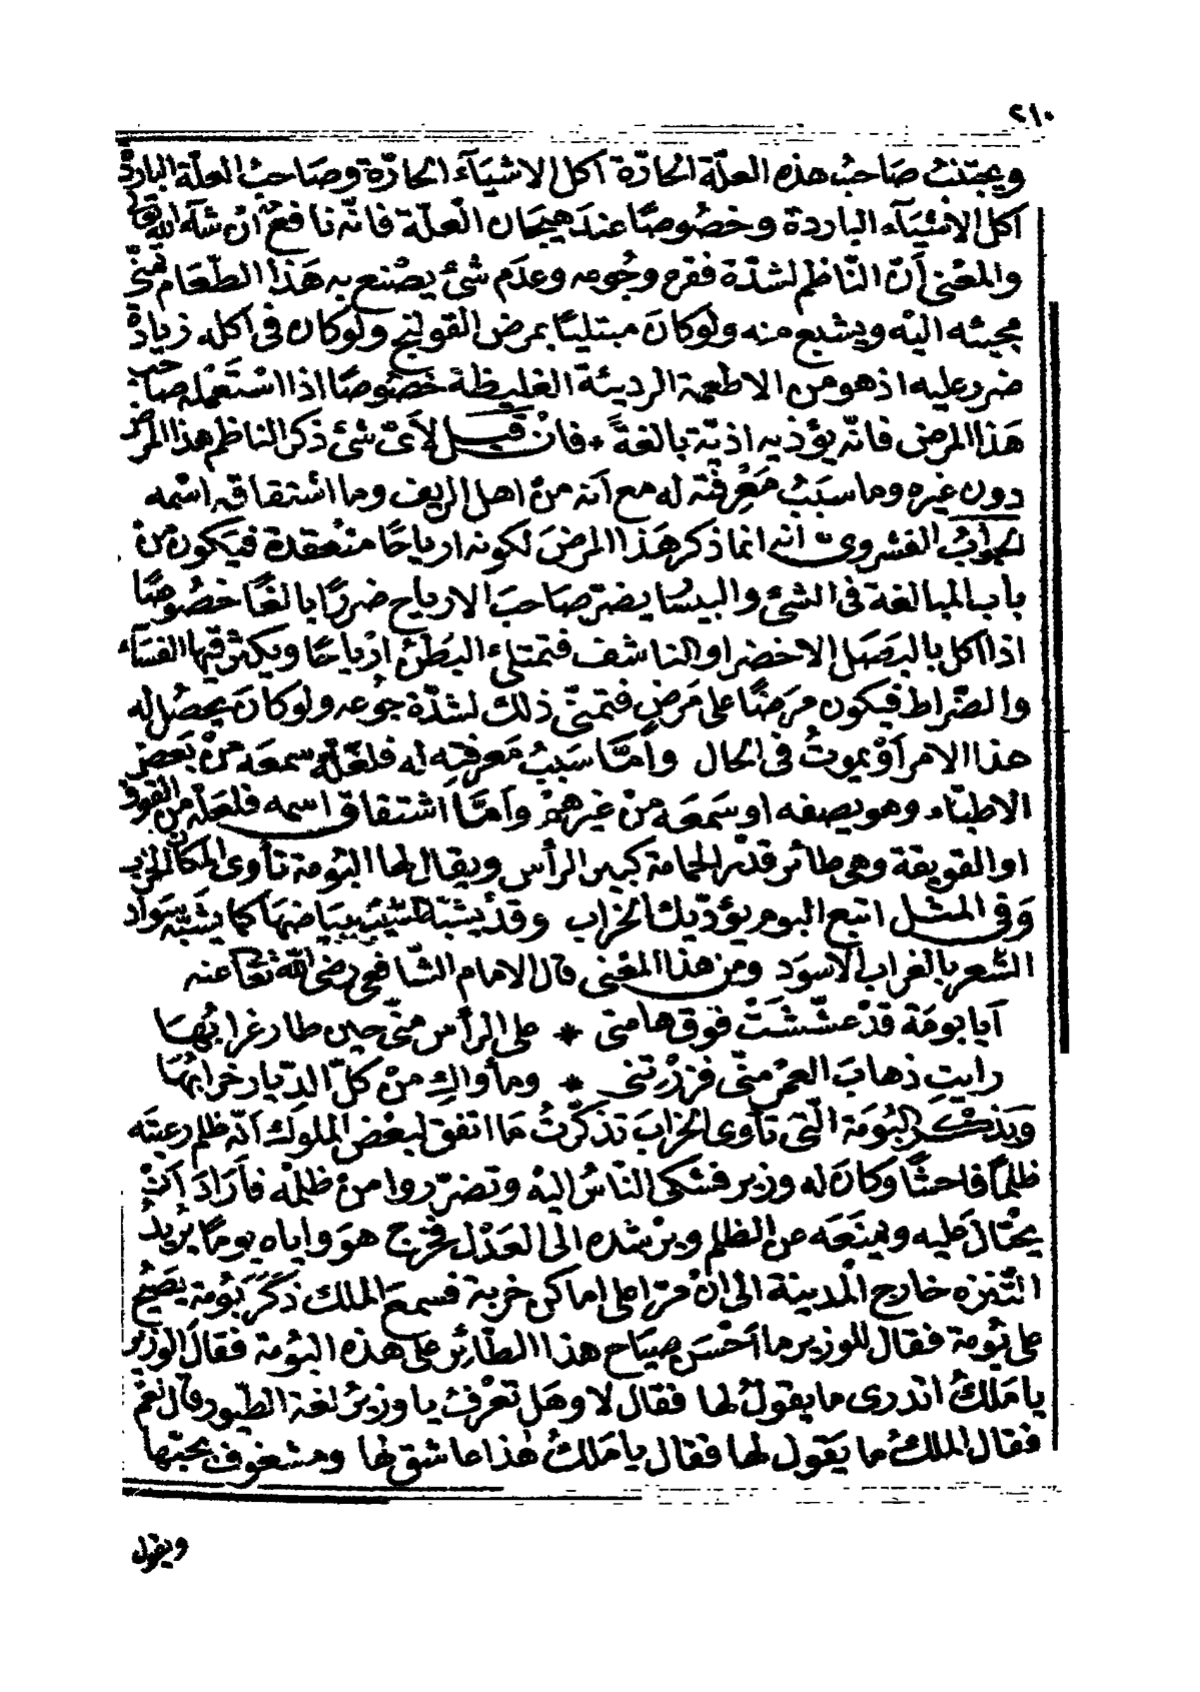 ٢١٠
ويجتنب صاحب هذه العلّة الحادّة اكل الاشيآء الحادّة وصاحب العلّة الباردة
اكل الاشيآء الباردة وخصُوصًا عند هيجان العلّة فانّه نافع انْ شآء الله تعالى
والمعْنى أنّ النّاظم لشدّة فقره وجُوعه وعدَم شئ يصْنع به هَذا الطّعَام تمنّى
مجيئه اليْه ويشبع منه ولوكانَ مبتليًا بمرض القولنج ولوكان فى اكله زيادة
ضررعليه اذهومن الاطعمة الرديئة الغليظة خصُوصًا اذا اسْتعْمله صاحب
هَذا المرض فانّه يؤذيه اذيّة بالغةً * فانْ قيل لأىّ شئ ذكر الناظم هذا المرض
دون غيره وما سبَبُ مَعْرفته له مع أنه منْ اهل الريف وما اشتقاق اسْمه
الجواب الفشروىّ انه انما ذكر هَذا المرضَ لكونه ارياحًا منعقدة فيكون منْ
باب المبالغة فى الشئ والبيسا يضرّ صاحبَ الارياح ضررًا بالغًا خصُوصًا
اذا اكل بالبصَل الاخضر او الناشف فتمتلئ البَطْنُ ارْياحًا ويكثر فيها الفسَآء
والضّراط فيكون مرَضًا على مَرضٍ فتمنّى ذلك لشدّة جُوعه ولوكانَ يحصُل له
هذا الامر أوْ يموتُ فى الحال وأمّا سَببُ مَعْرفته له فلعلّه سمعَه منْ بَعض
الاطبّاء وهو يصفه اوسَمعَه منْ غيرهمْ وأمّا اشتقاق اسمه فلعلّه من القوق
او القويقة وهى طائر قدْر الحمامة كبير الرأس ويقال لها البُومة تأوى المكان الخرب
وفى المثل اتبع البوم يؤدّيك الخراب وقدْ يشبّه الشّيْب ببياضها كما يشبّه سَواد
الشّعر بالغراب الاسوَد ومن هذا المعْنى قال الامام الشّافعى رضى الله تعالى عنه
أيا بومَة قدْ عشّشَتْ فوق هامتى * على الرأس منّى حين طار غرابُهَا
رايتِ ذهابَ العمْر منّى فزرْتنى * ومأواكِ منْ كلّ الدّيار خرابُهَا
وَبذكر البُومَة الّتى تأوى الخرابَ تذكّرتُ مَا اتفق لبعْض الملوك أنّه ظلم رعيّته
ظلمًا فاحشًا وكانَ له وزير فشكى النّاسُ اليْه وتضرّروا منْ ظلمْه فأرَادَ أنْ
يحْتالَ عليه ويمنَعَه من الظلم ويرْشده الى العَدْل فخرج هوَ واياه يومًا يُريدُ
التّنزه خارج المْدينة الى انْ مرّا على اماكن خربة فسمعَ الملك ذَكَر بُومة يَصيحُ
على بُومة فقال للوزير ما أحْسَن صيَاح هذا الطّائر على هَذه البُومة فقالَ الوزير
يا مَلكُ اتدرى ما يقولُ لها فقال لا وهَل تعْرفُ يا وزيرُ لغة الطّيور قال نعَمْ
فقال الملكُ ما يَقول لها فقال يا مَلكُ هَذا عاشق لها ومشغوف بحبّها
ويقول